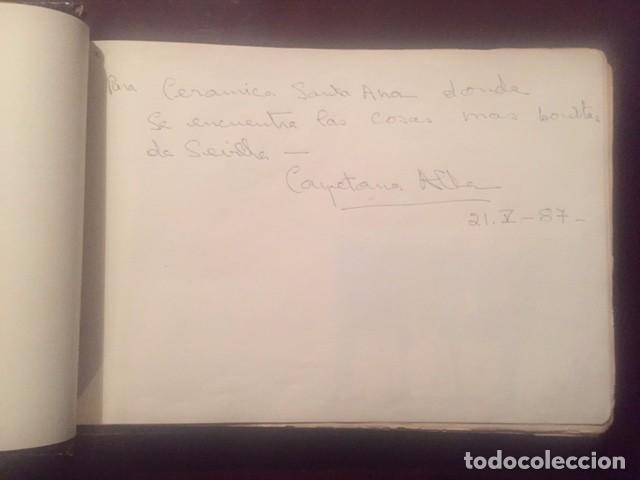 Para Ceramica Santa Ana donde
se encuentra las cosas mas bonitas
de Sevilla —
Cayetana Alba
21. V - 87 -
todocoleccion